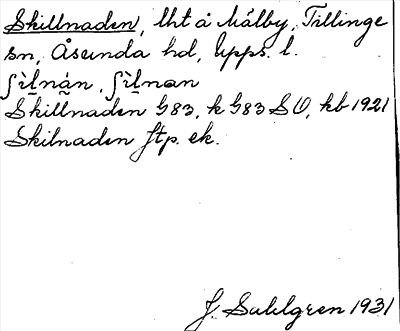 Skillnaden, lht å Målby, Tillinge
sn, Åsunda hd, Upps. l.
ʃìl̠nàn, ʃìl̠nan
Skillnaden G83, k G83 SV, kb 1921
Skilnaden ftp. ek.
J. Sahlgren 1931